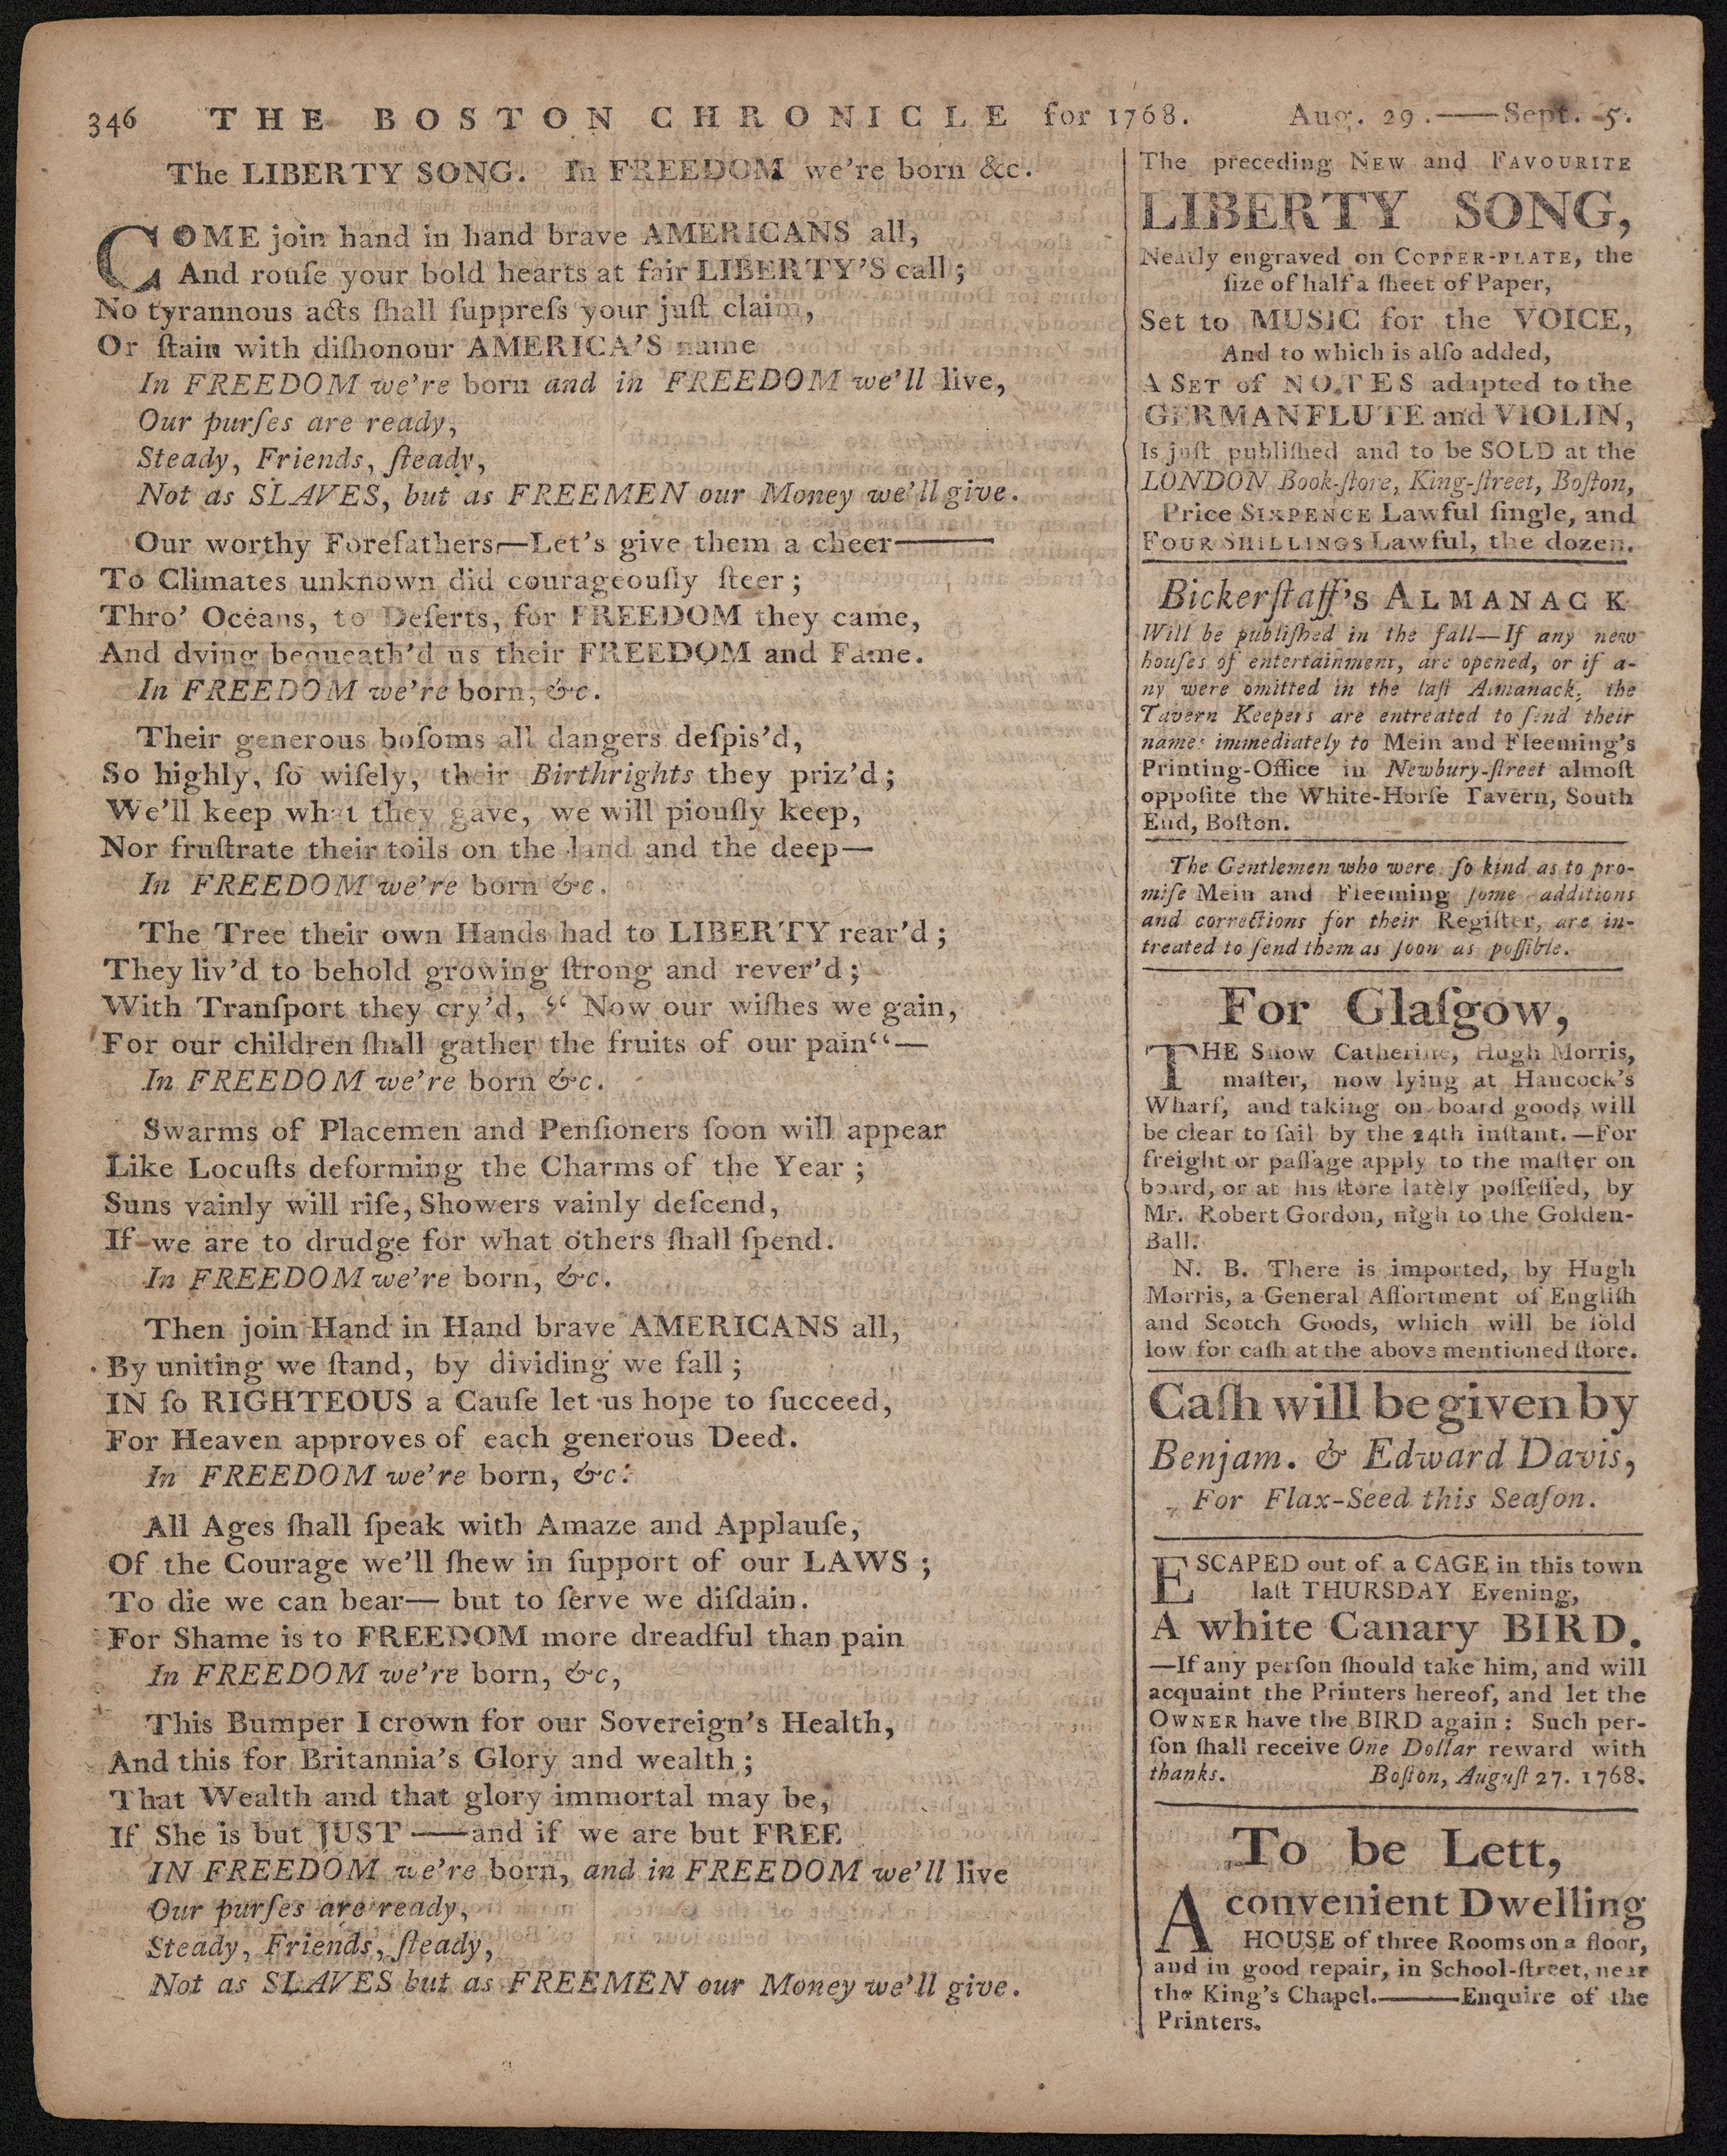 346 THE BOSTON CHRONICLE for 1768. Aug. 29.——Sept. 5.
The LIBERTY SONG. In FREEDOM we're born &c.
COME join hand in hand brave AMERICANS all,
And rouſe your bold hearts at fair LIBERTY'S call;
No tyrannous acts ſhall ſuppreſs your juſt claim,
Or ſtain with diſhonour AMERICA'S name
In FREEDOM we're born and in FREEDOM we'll live,
Our purſes are ready,
Steady, Friends, ſteady,
Not as SLAVES, but as FREEMEN our Money we'll give.
Our worthy Forefathers—Let's give them a cheer——
To Climates unknown did courageouſly ſteer;
Thro' Oceans, to Deſerts, for FREEDOM they came,
And dying bequeath'd us their FREEDOM and Fame.
In FREEDOM we're born, &c.
Their generous boſoms all dangers deſpis'd,
So highly, ſo wiſely, their Birthrights they priz'd;
We'll keep what they gave, we will piouſly keep,
Nor fruſtrate their toils on the land and the deep—
In FREEDOM we're born &c.
The Tree their own Hands had to LIBERTY rear'd;
They liv'd to behold growing ſtrong and rever'd;
With Tranſport they cry'd, “ Now our wiſhes we gain,
For our children ſhall gather the fruits of our pain“—
In FREEDOM we're born &c.
Swarms of Placemen and Penſioners ſoon will appear
Like Locuſts deforming the Charms of the Year;
Suns vainly will riſe, Showers vainly deſcend,
If we are to drudge for what others ſhall ſpend.
In FREEDOM we're born, &c.
Then join Hand in Hand brave AMERICANS all,
By uniting we ſtand, by dividing we fall;
IN ſo RIGHTEOUS a Cauſe let us hope to ſucceed,
For Heaven approves of each generous Deed.
In FREEDOM we're born, &c.
All Ages ſhall ſpeak with Amaze and Applauſe,
Of the Courage we'll ſhew in ſupport of our LAWS;
To die we can bear— but to ſerve we diſdain.
For Shame is to FREEDOM more dreadful than pain
In FREEDOM we're born, &c,
This Bumper I crown for our Sovereign's Health,
And this for Britannia's Glory and wealth;
That Wealth and that glory immortal may be,
If She is but JUST ——and if we are but FREE
IN FREEDOM we're born, and in FREEDOM we'll live
Our purſes are ready,
Steady, Friends, ſteady,
Not as SLAVES but as FREEMEN our Money we'll give.
The preceding NEW and FAVOURITE
LIBERTY SONG,
Neatly engraved on COPPER-PLATE, the
ſize of half a ſheet of Paper,
Set to MUSIC for the VOICE,
And to which is alſo added,
A SET of NOTES adapted to the
GERMAN FLUTE and VIOLIN,
Is juſt publiſhed and to be SOLD at the
LONDON Book-ſtore, King-ſtreet, Boſton,
Price SIXPENCE Lawful ſingle, and
FOUR SHILLINGS Lawful, the dozen.
Bickerſtaff's ALMANACK
Will be publiſhed in the fall—If any new
houſes of entertainment, are opened, or if a-
ny were omitted in the laſt Almanack, the
Tavern Keepers are entreated to ſend their
names immediately to Mein and Fleeming's
Printing-Office in Newbury-ſtreet almoſt
oppoſite the White-Horſe Tavern, South
End, Boſton.
The Gentlemen who were ſo kind as to pro-
miſe Mein and Fleeming ſome additions
and corrections for their Regiſter, are in-
treated to ſend them as ſoon as poſſible.
For Glaſgow,
THE Snow Catherine, Hugh Morris,
maſter, now lying at Hancock's
Wharf, and taking on board goods will
be clear to ſail by the 24th inſtant.—For
freight or paſſage apply to the maſter on
board, or at his ſtore lately poſſeſſed, by
Mr. Robert Gordon, nigh to the Golden-
Ball.
N. B. There is imported, by Hugh
Morris, a General Aſſortment of Engliſh
and Scotch Goods, which will be ſold
low for caſh at the above mentioned ſtore.
Caſh will be given by
Benjam. & Edward Davis,
For Flax-Seed this Seaſon.
ESCAPED out of a CAGE in this town
laſt THURSDAY Evening,
A white Canary BIRD.
—If any perſon ſhould take him, and will
acquaint the Printers hereof, and let the
OWNER have the BIRD again: Such per-
ſon ſhall receive One Dollar reward with
thanks. Boſton, Auguſt 27. 1768.
To be Lett,
A convenient Dwelling
HOUSE of three Rooms on a floor,
and in good repair, in School-ſtreet, near
the King's Chapel.——Enquire of the
Printers.